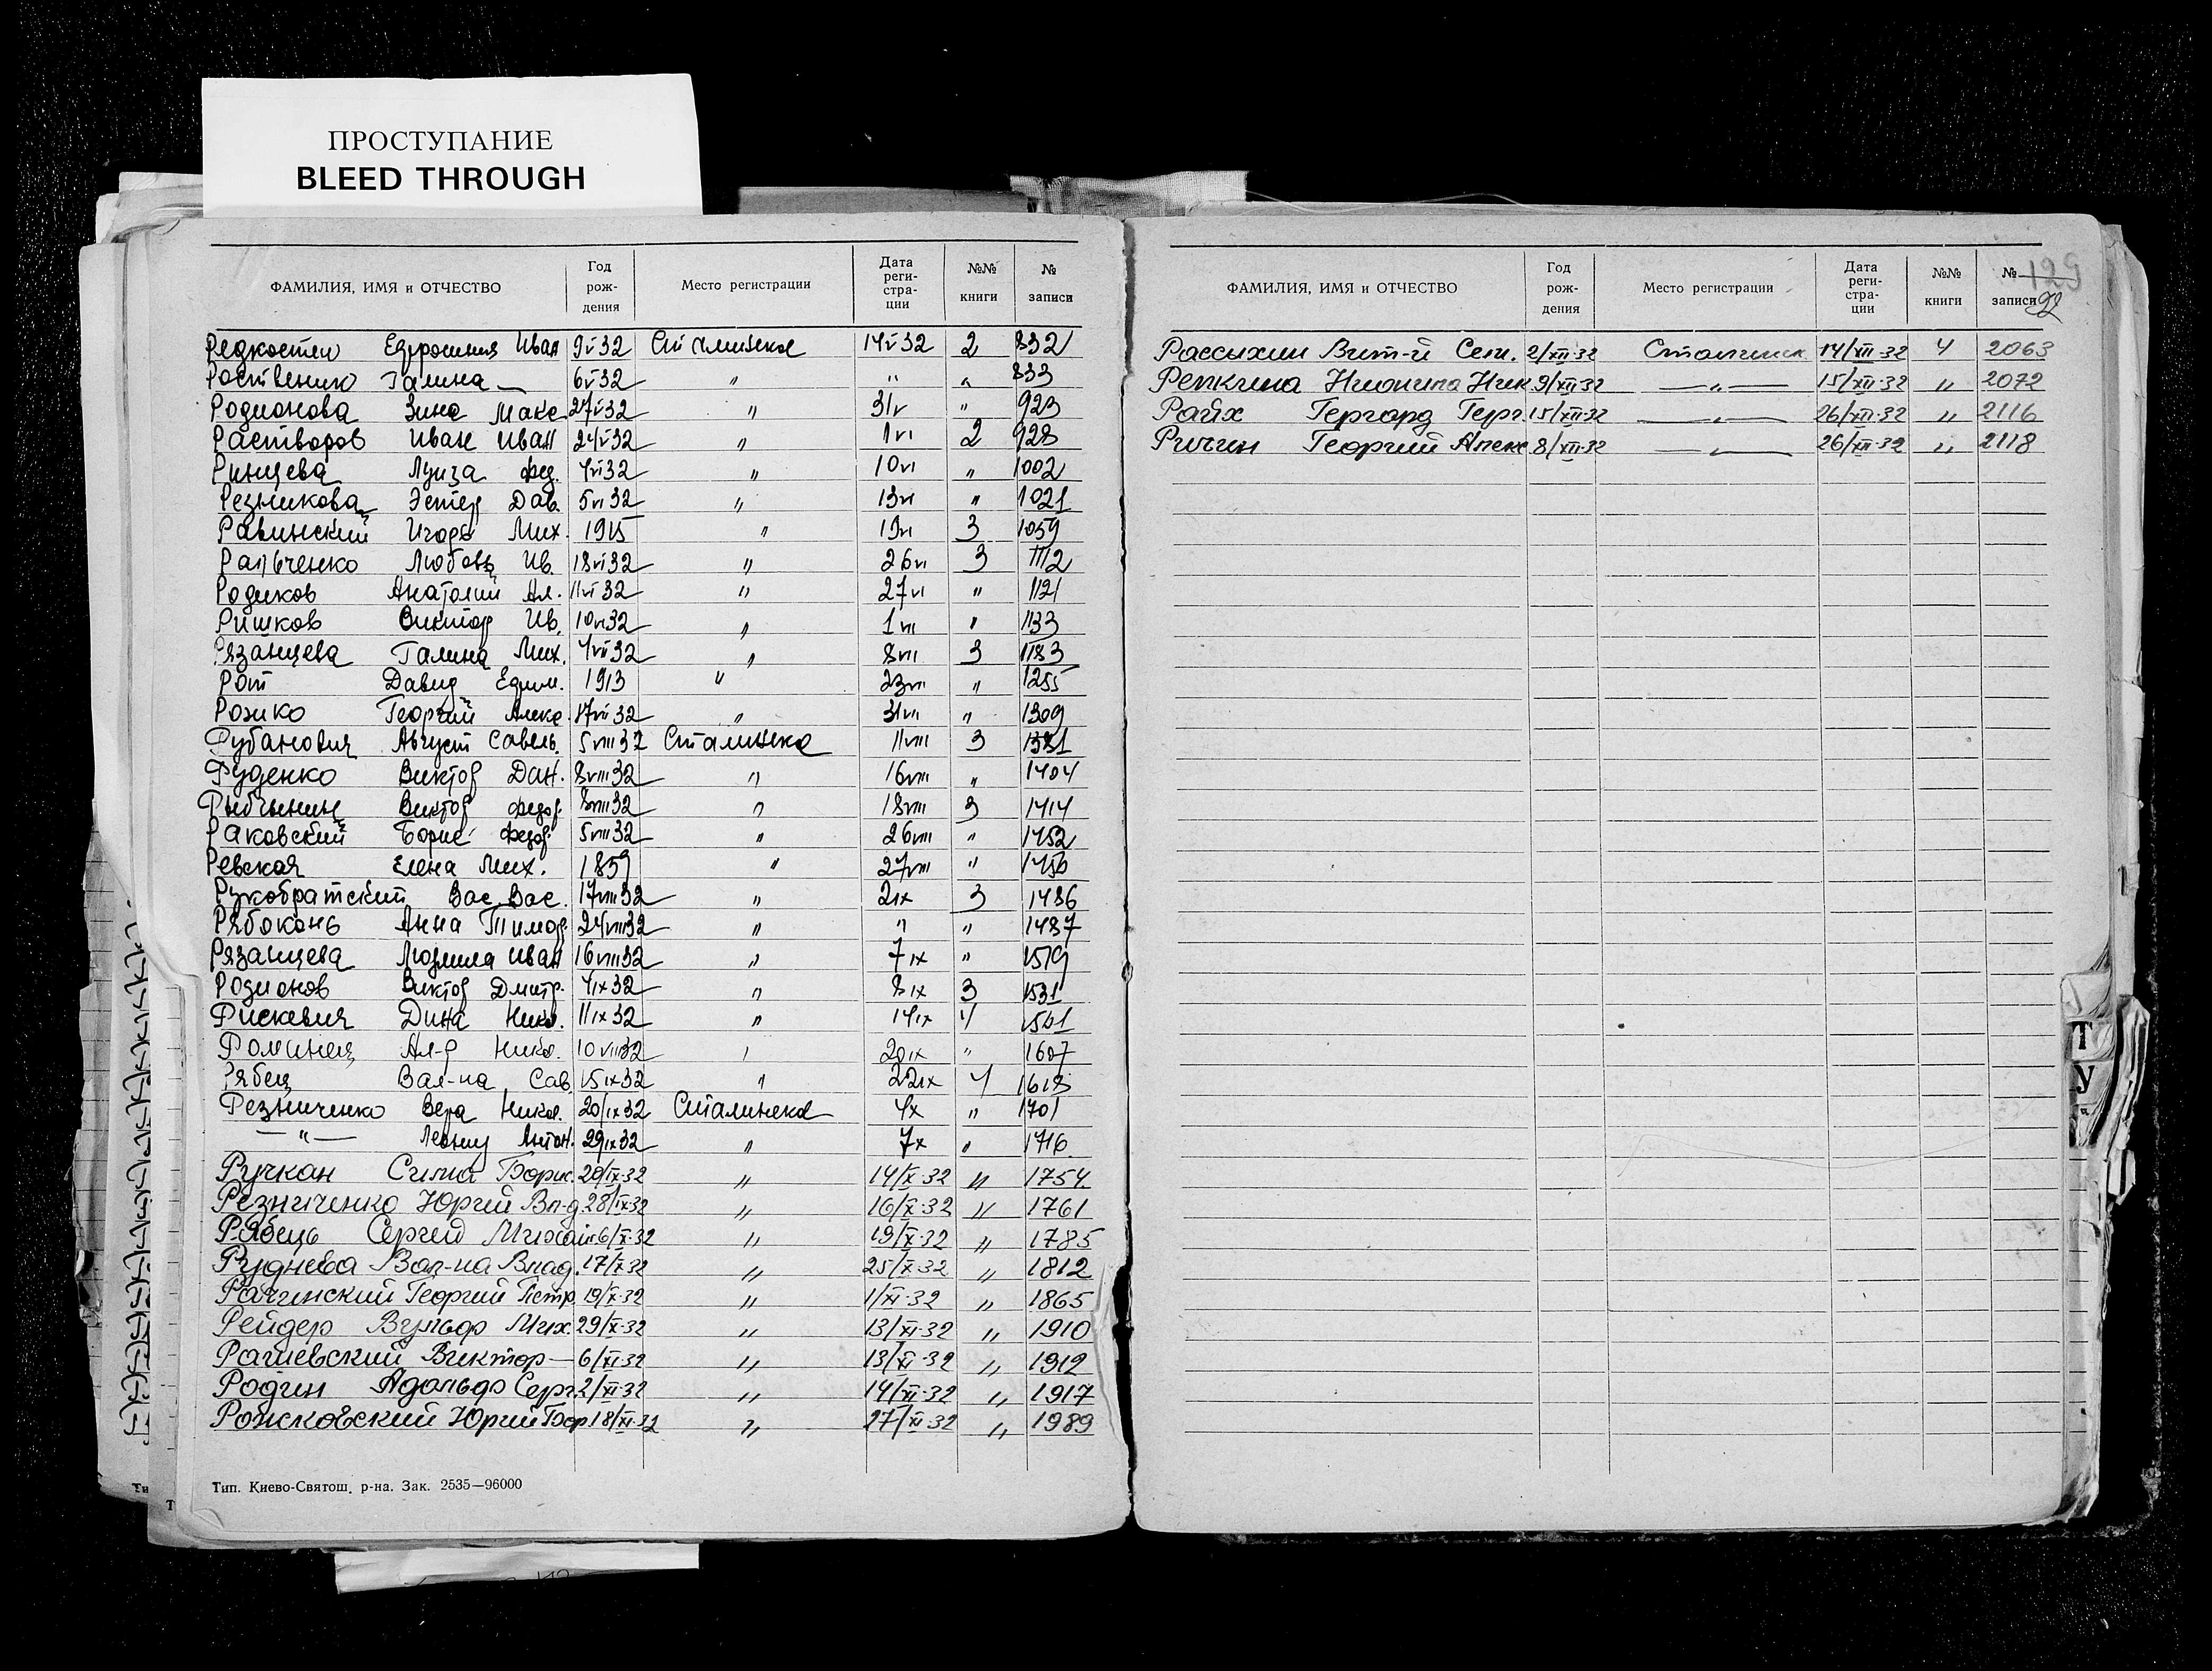 ПРОСТУПАНИЕ
BLEED THROUGH
ФАМИЛИЯ, ИМЯ и ОТЧЕСТВО Год рож- дения Место регистрации Дата реги- стра- ции №№ книги № записи
Ефросиния Иван 9 V 32 Сталинска 14 V 32 2 832
Галина — 6 V 32 " " " 833
Родионова Зина Макс 27 V 32 " 31 V " 923
Растворов Иван Иван 24 V 32 " 1 VI 2 928
Ринцева Луиза Фед. 4 VI 32 " 10 VI " 1002
Резникова Эстер Дав. 5 VI 32 " 13 VI " 1021
Равинский Игорь Мих. 1915 " 19 VI 3 1059
Рапьченко Любовь Ив. 18 VI 32 " 26 VI 3 1112
Родиков Анатолий Ал. 11 VI 32 " 27 VI " 1121
Ришков Виктор Ив. 10 VI 32 " 1 VII " 1133
Рязанцева Галина Мих. 4 VII 32 " 8 VII 3 1183
Рот Давид Ефим. 1913 " 23 VII " 1255
Рожко Георгий Алекс. 17 VII 32 " 31 VII " 1309
Рубанович Август Савель. 5 VIII 32 Сталинска 11 VIII 3 1381
Руденко Виктор Дан. 8 VIII 32 " 16 VIII " 1404
Виктор Федор. 8 VIII 32 " 18 VIII 3 1414
Раковский Борис Федор. 5 VIII 32 " 26 VIII " 1452
Ревская Елена Мих. 1859 " 27 VIII " 1456
Рукобратский Вас. Вас. 17 VIII 32 " 2 IX 3 1486
Рябоконь Анна Тимоф. 24 VIII 32 " " " 1487
Рязанцева Людмила Иван 16 VIII 32 " 7 IX " 1519
Родионов Виктор Дмитр. 4 IX 32 " 8 IX 3 1531
Рискевич Дина Никол. 11 IX 32 " 14 IX 4 1561
Роминец Ал-р Никол. 10 VIII 32 " 20 IX " 1607
Рябец Вал-на Сав. 15 IX 32 " 22 IX 4 1618
Резниченко Вера Никол. 20/IX 32 Сталинска 4 X " 1701
— " — Леонид Антон. 29 IX 32 " 7 X " 1716
Ручкан Сима Борис. 20/IX-32 " 14/X-32 " 1754
Резниченко Юрий Вл-д 28/IX-32 " 16/X-32 " 1761
Рябець Сергей Михаил. 6/X-32 " 19/X-32 " 1785
Руднева Вал-на Влад. 17/X-32 " 25/X-32 " 1812
Рачинский Георгий Петр. 19/X-32 " 1/XI-32 " 1865
Рейдер Вульф Мих. 29/X-32 " 13/XI-32 " 1910
Рашевский Виктор — 6/XI-32 " 13/XI-32 " 1912
Родин Адольф Серг. 2/XI-32 " 14/XI-32 " 1917
Рожковский Юрий Бор. 18/XI-32 " 27/XI-32 " 1989
Тип. Киево-Святош. р-на. Зак. 2535—96000
129
92
ФАМИЛИЯ, ИМЯ и ОТЧЕСТВО Год рож- дения Место регистрации Дата реги- стра- ции №№ книги № записи
Рассыхин Вит-й Сем. 2/XII-32 Сталинск 14/XII-32 4 2063
Репкина Ник 9/XII-32 — " — 15/XII-32 " 2072
Райх Гергард Герг. 15/XII-32 — " — 26/XII-32 " 2116
Ричин Георгий Алекс 8/XII-32 — " — 26/XII-32 " 2118
Т
У